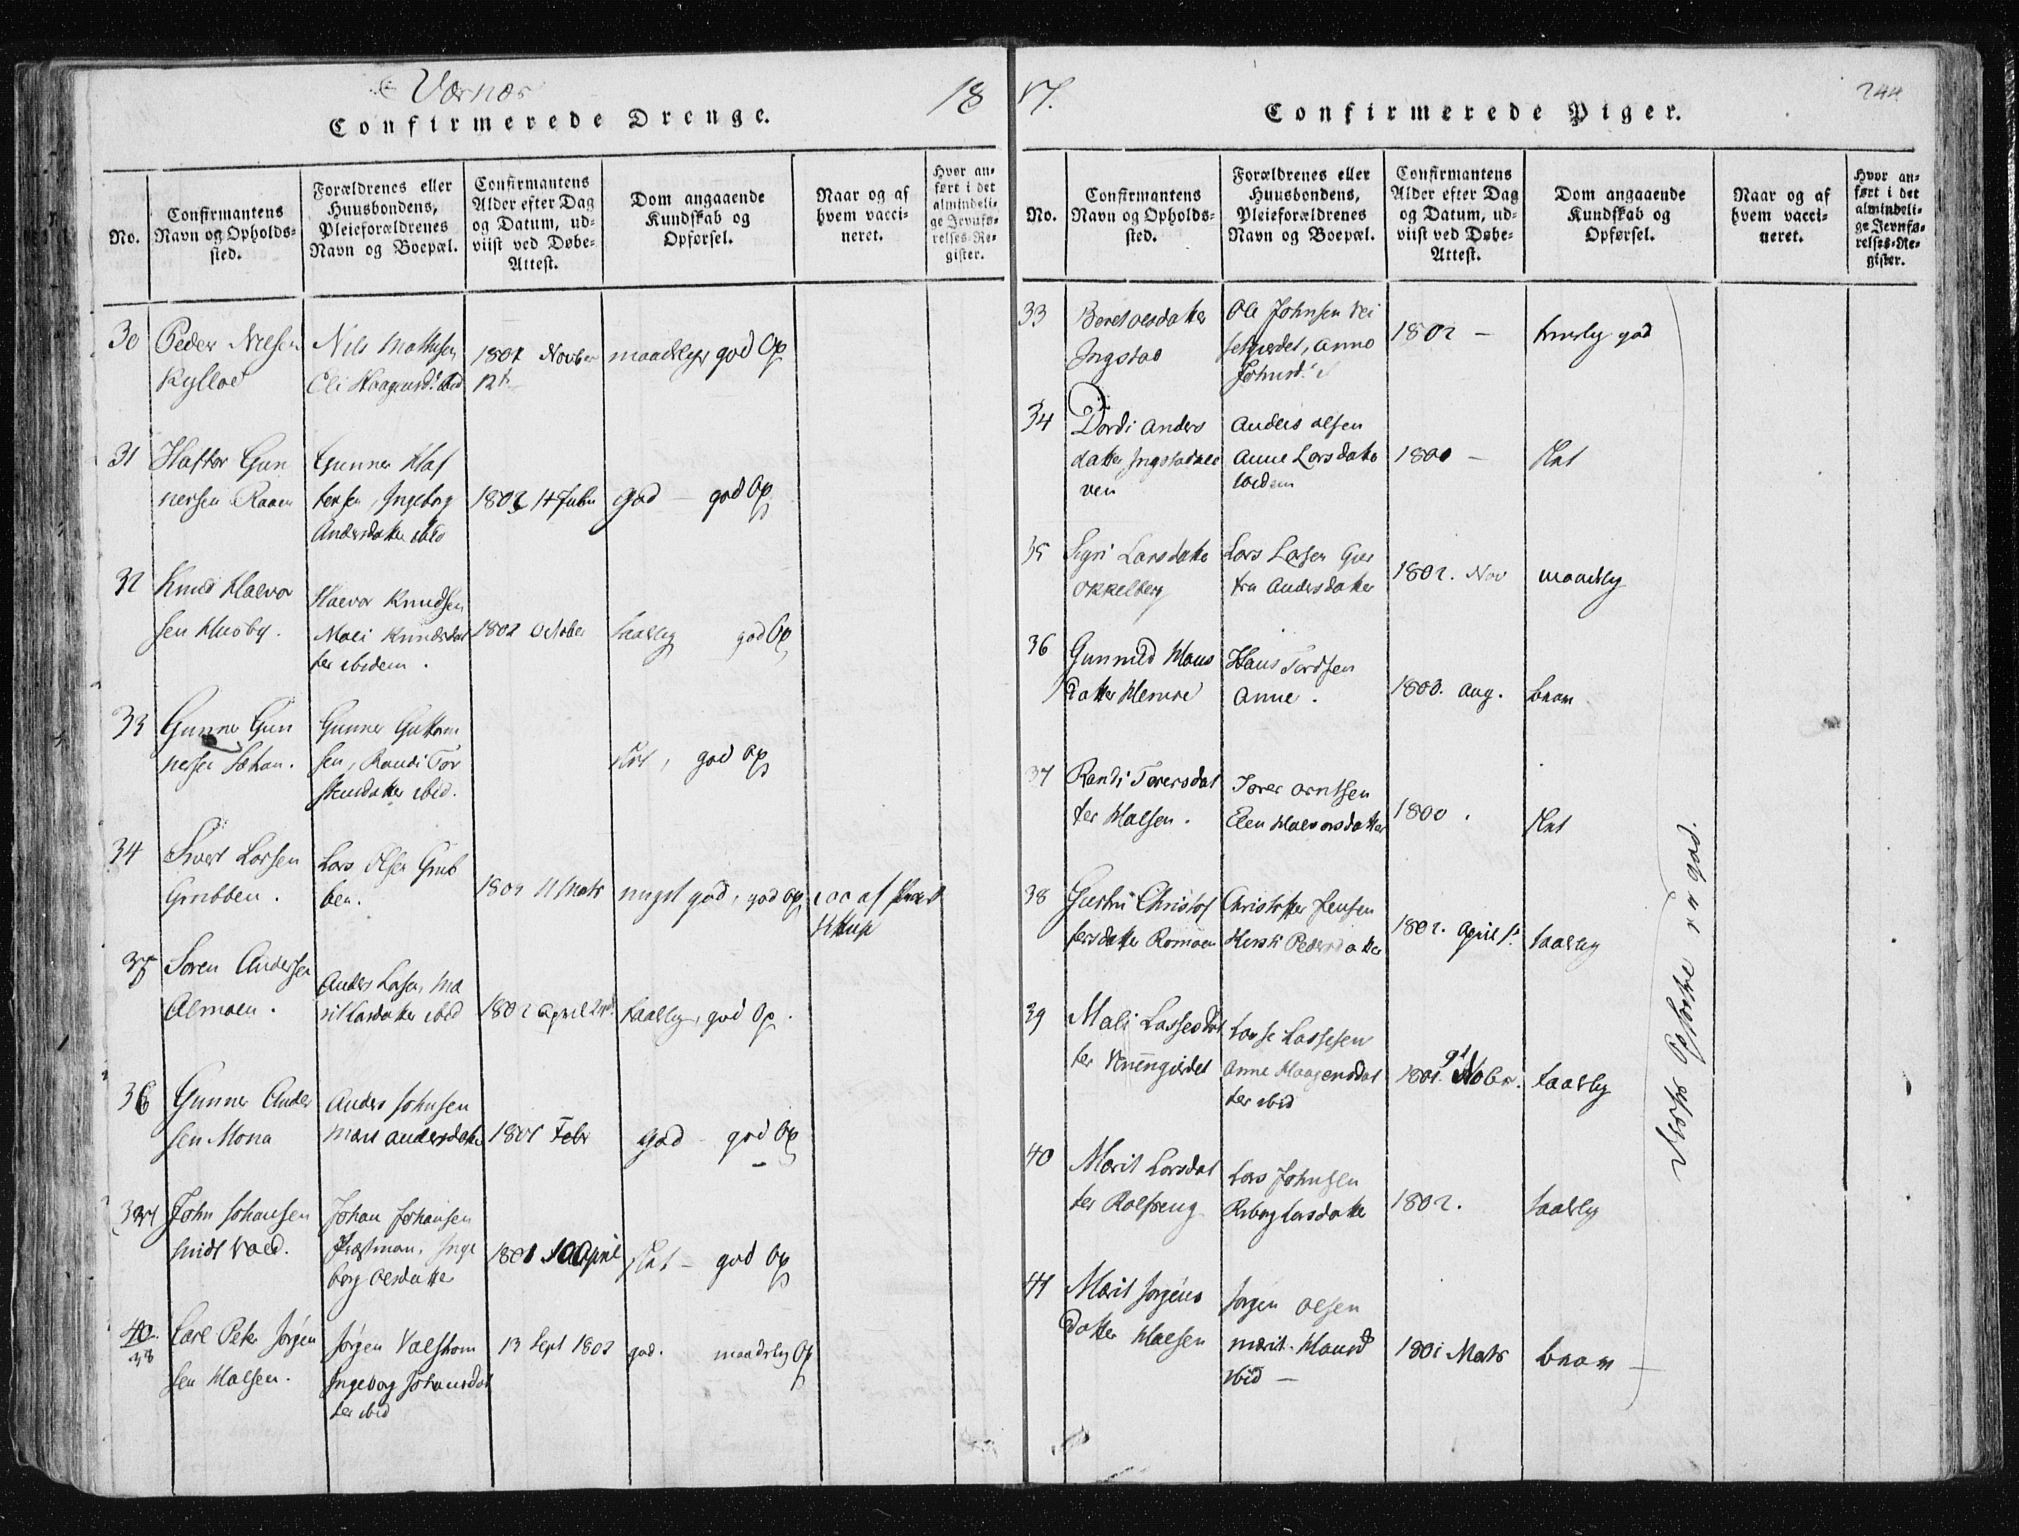 Værnes
18
Confirmerede Drenge.
No.
Confirmantens
Navn og Opholds-
sted.
Forældrenes eller
Huusbondens,
Pleieforældrenes
Navn og Boepæl.
Confirmantens
Alder efter Dag
og Datum, ud-
viist ved Døbe-
Attest.
Dom angaaende
Kundskab og
Opførsel.
Naar og af
hvem vacci-
neret.
Hvor an-
ført i det
almindeli-
ge Jevnfø-
relses-Re-
gister.
30
Peder Nilsen
Kylloe
Nils Mathisen
Eli Haagensd. ibid
1801 Novber
12te
maadelig god Op
31
Haftor Gun
nersen Raaen
Gunner Haf
torsen, Ingeborg
Andersdatter ibid
1802 14 Febr
god — god Op
32
Knud Halvor
sen Husby.
Halvor Knudsen
Mali Knudsdat
ter ibidem.
1802 October
taalelig god Op
33
Gunner Gun
nersen
Gunner Guttorm
sen, Randi Tor
stensdatter ibid.
slet, god Op
34
Sivert Larsen
Grubben.
Lars Olsen Grub
ben.
1802 11 Marts
meget god, god Op
af
35
Soren Andersen
Almoen.
Anders Larsen, Ma
rit Larsdatter ibid
1802 April
taalelig, god Op.
36
Gunner Ander
sen Mona
Anders Johnsen
Mari Andersdatter
1801 Febr
god — god Op
37
John Johansen
Johan Johansen
Inge
borg Olsdatter
1801 10 April
slet — god Op
40
38
Carl Peter Jørgen
sen Halsen.
Jørgen Valstrom
Ingeborg Johansdat
ter ibid
13 Sept 1802
god. maadelig Op
17.
244
Confirmerede Piger.
No.
Confirmantens
Navn og Opholds-
sted.
Forældrenes eller
Huusbondens,
Pleieforældrenes
Navn og Boepæl.
Confirmantens
Alder efter Dag
og Datum, ud-
viist ved Døbe-
Attest.
Dom angaaende
Kundskab og
Opførsel.
Naar og af
hvem vacci-
neret.
Hvor an-
ført i det
almindeli-
ge Jevnfø-
relses-Re-
gister.
33
Beret Olsdatter
Ingstad
Ole Johnsen Vei
Anne
Johnsd.
1802 —
god
34
Dordi Anders
datter Ingstadkle
ven
Anders Olsen
Anne Larsdatter
ibidem
1801 —
slet
35
Sigri Larsdatter
Okkelberg
Lars Larsen Gjer
tru Andersdatter
1802. Nov
maadelig
36
Gunnild Hans
datter Hemre
Hans Tordsen
Anne.
1800. Aug.
brav
37
Randi Torersdat
ter Halsen.
Torer Arntsen
Elen Halvorsdatter
1800.
slet
38
Gurru Christof
fersdatter Romoen
Christoffer Jensen
Kirsti Pedersdatter
1802. April
taalelig
39
Mali Lassesdat
ter
Lasse Lassesen
Anne Haagensdat
ter ibid
1801. Nobr.
taalelig
40
Marit Larsdat
ter Rolfseng
Lars Johnsen
Larsdatter
1802.
taalelig
41
Marit Jørgens
datter Halsen
Jorgen Olsen
Marit Hansd
ibid —
1801 Marts
brav —
Opførsel var god.